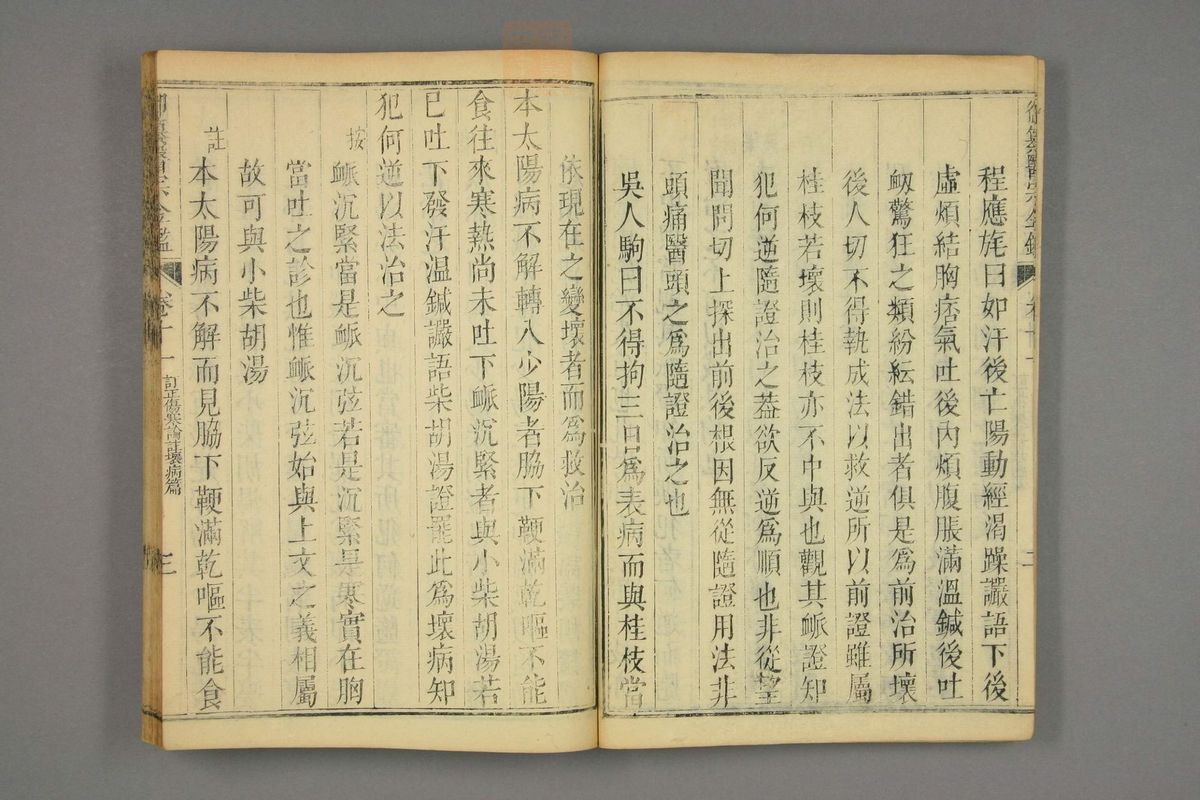 程應旄曰如汗後亡陽動經渴躁讝語下後
虛煩結胸痞氣吐後內煩腹脹滿溫鍼後吐
衂驚狂之類紛紜錯出者俱是爲前治所壞
後人切不得執成法以救逆所以前證雖屬
桂枝若壞則桂枝亦不中與也觀其脈證知
犯何逆隨證治之葢欲反逆爲順也非從望
聞問切上探出前後根因無從隨證用法非
頭痛醫頭之爲隨證治之也
吳人駒曰不得拘三日爲表病而與桂枝當
依現在之變壞者而爲救治
本太陽病不解轉入少陽者脇下鞕滿乾嘔不能
食往來寒熱尚未吐下脈沉緊者與小柴胡湯若
已吐下發汗温鍼讝語柴胡湯證罷此爲壞病知
犯何逆以法治之
按脈沉緊當是脈沉弦若是沉緊是寒實在胸
當吐之診也惟脈沉弦始與上文之義相屬
故可與小柴胡湯
註本太陽病不解而見脇下鞕滿乾嘔不能食
卷十一
訂正傷寒論註壞病篇
三